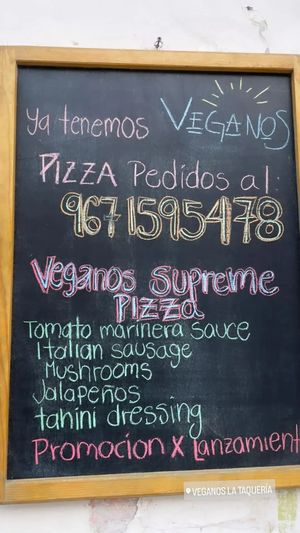 Ya tenemos VEGANOS
PIZZA Pedidos al:
9671595478
Veganos Supreme
PIZZa
Tomato marinera sauce
Italian sausage
Mushrooms
Jalapeños
tahini dressing
Promocion X Lanzamient
VEGANOS LA TAQUERÍA